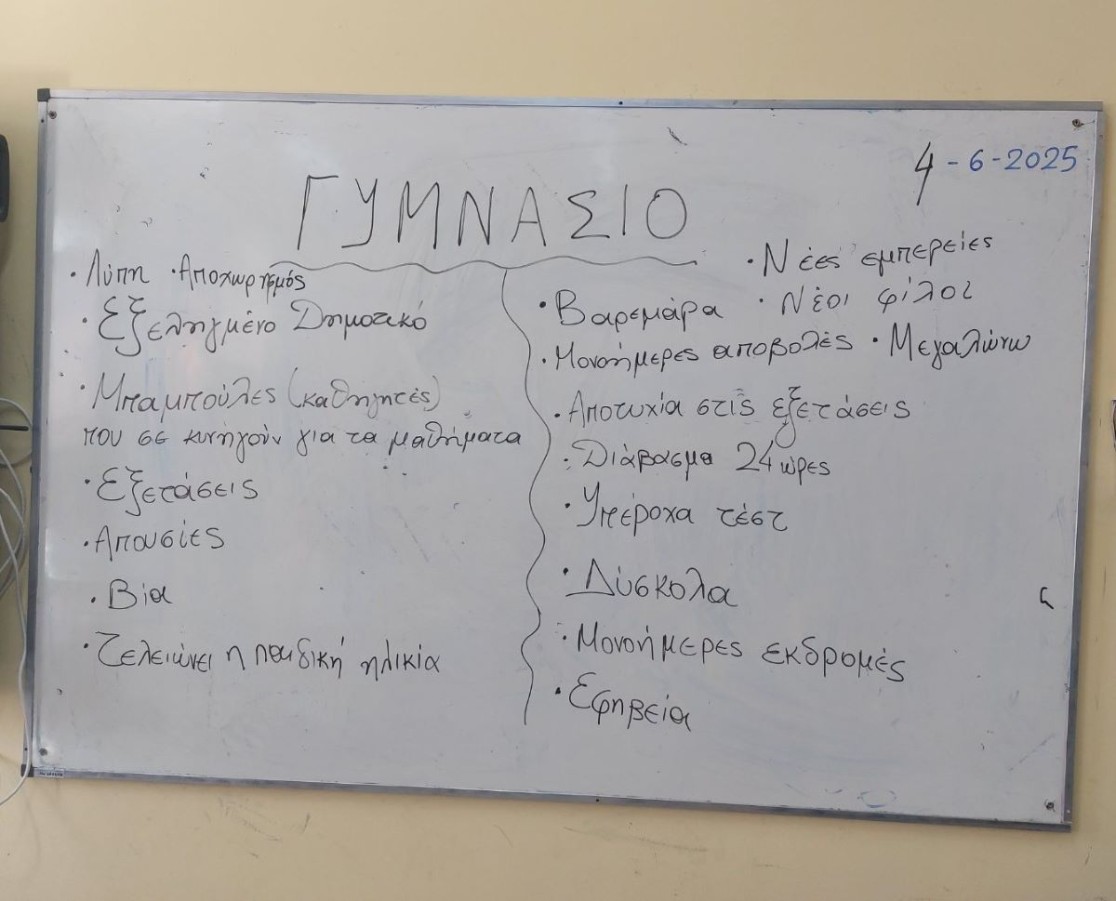 4-6-2025
ΓΥΜΝΑΣΙΟ
· Λύπη · Αποχωρισμός
· Εξελιγμένο Δημοτικό
· Μπαμπούλες (καθηγητές)
που σε κυνηγούν για τα μαθήματα
· Εξετάσεις
· Απουσίες
· Βία
· Τελειώνει η παιδική ηλικία
· Νέες εμπερείες
· Βαρεμάρα · Νέοι φίλοι
· Μονοήμερες αποβολές · Μεγαλώνω
· Αποτυχία στις εξετάσεις
· Διάβασμα 24 ώρες
· Υπέροχα τέστ
· Δύσκολα
· Μονοήμερες εκδρομές
· Εφηβεία